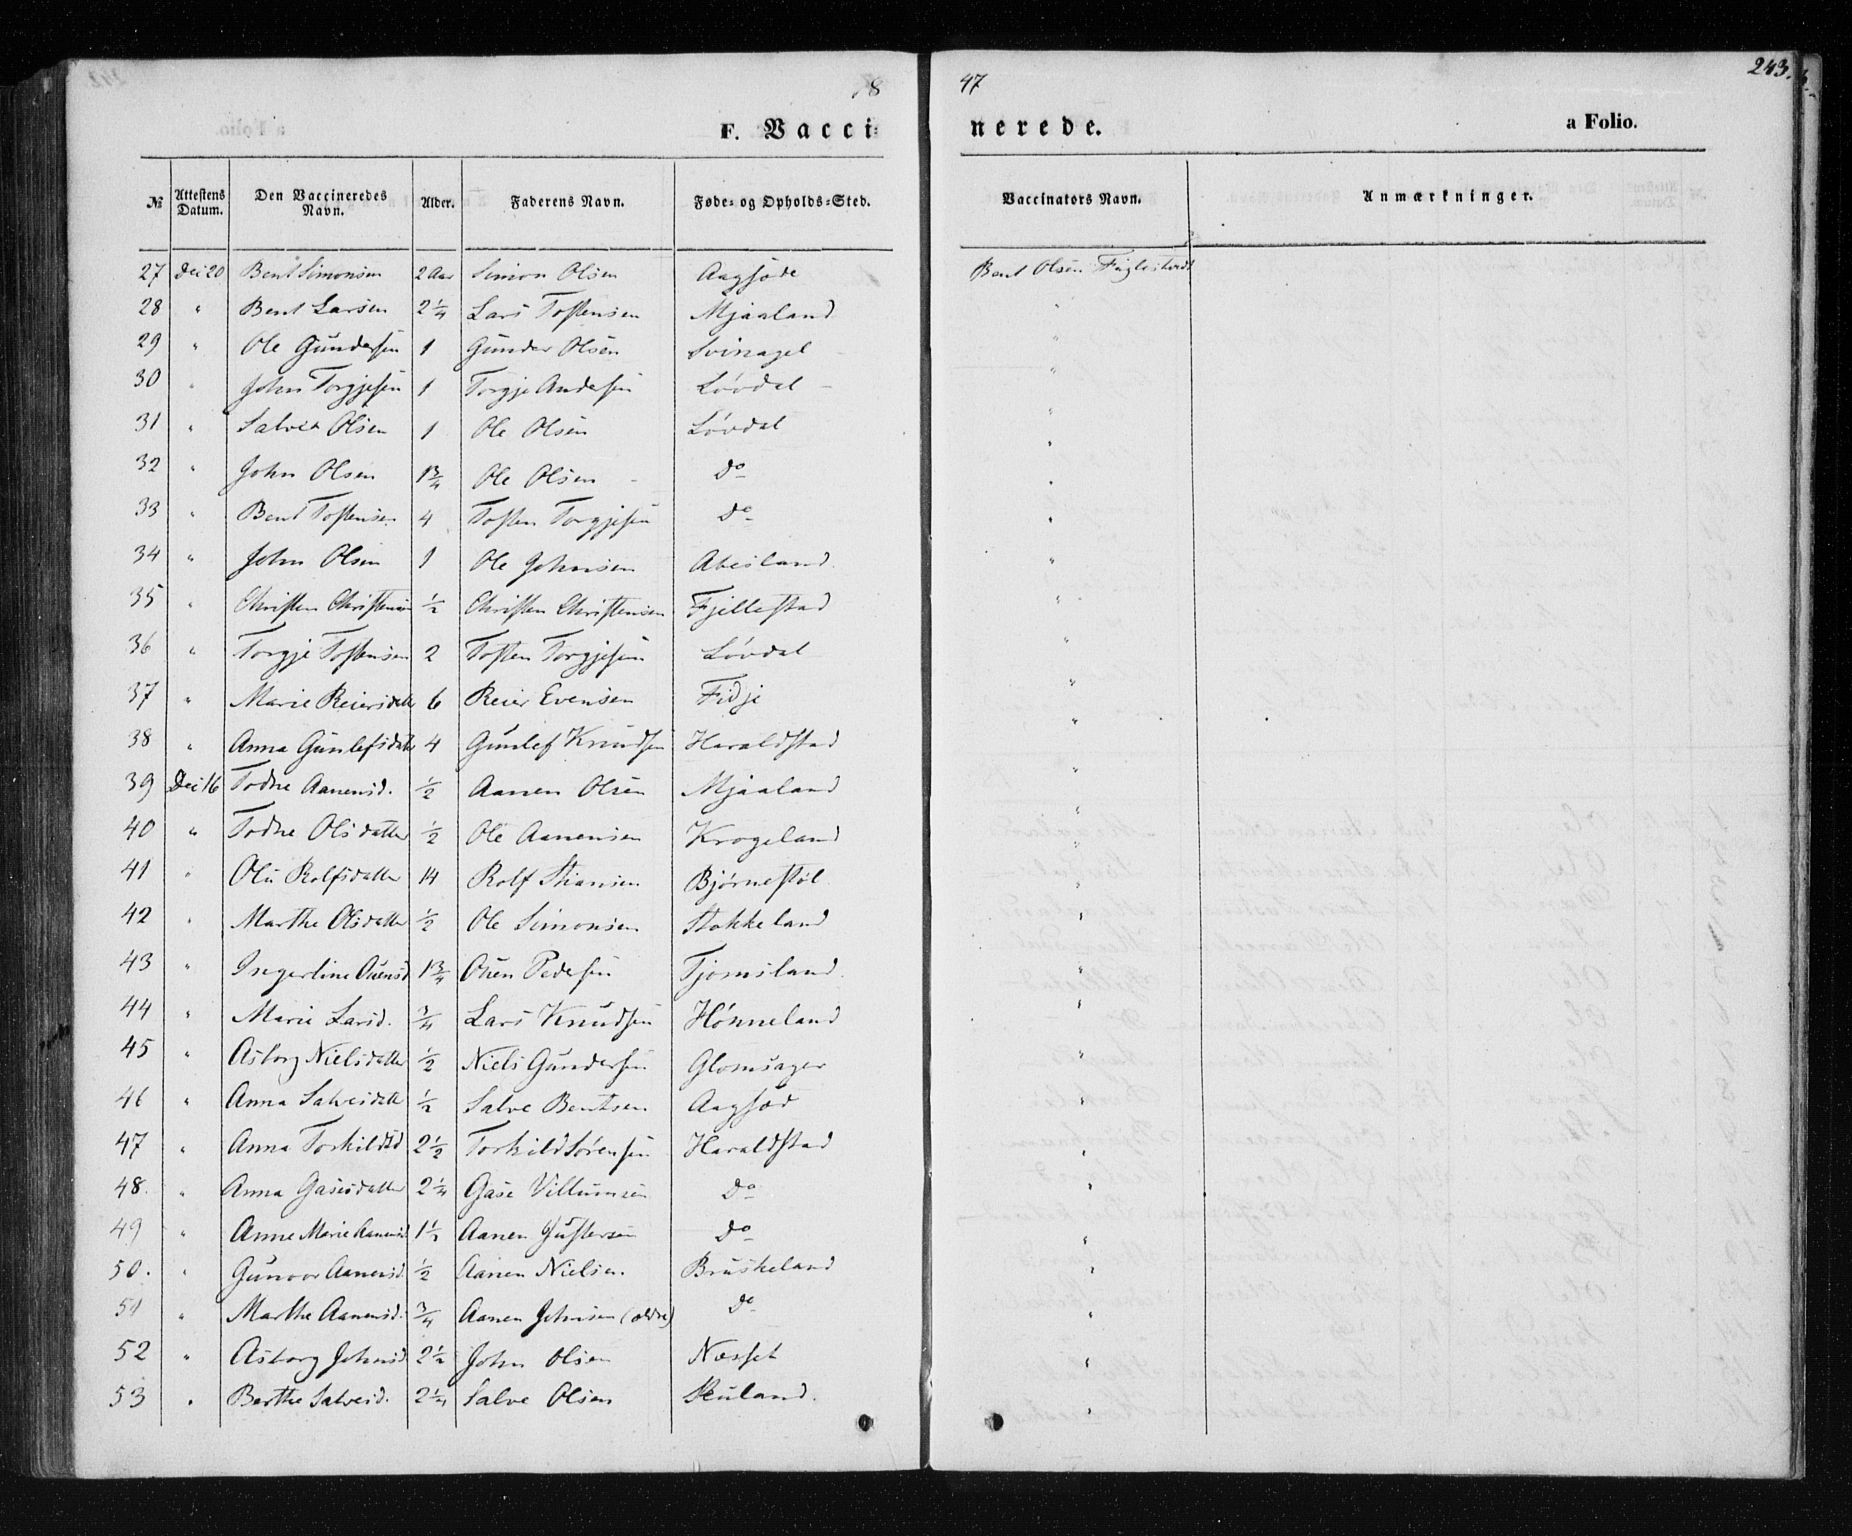 18 47 243.
F. Vaccinerede. a Folio.
№ Attestens Datum. Den Vaccineredes Navn. Alder. Faderens Navn. Føde- og Opholds-Sted. Vaccinators Navn. Anmærkninger.
27 Dec 20 Bent Simonsen 2 Aar Simon Olsen Aagsöde Bent Olsen
28 " Bent Larsen 2 1/4 Lars Tostensen Mjaaland "
29 " Ole Gundersen 1 Gunder Olsen Svinagel "
30 " John Torgjesen 1 Torgje Andersen Lövdal "
31 " Salve Olsen 1 Ole Olsen Lövdal "
32 " John Olsen 1 3/4 Ole Olsen Do "
33 " Bent Tostensen 4 Tosten Torgjesen Do "
34 " John Olsen 1 Ole Johnsen Abesland "
35 " Christen Christensen 1/2 Christen Christensen Fjellestad "
36 " Torgje Tostensen 2 Tosten Torgjesen Lövdal "
37 " Marie Reiersdatter 6 Reier Evensen Fidje "
38 " Anna Gunlefsdatter 4 Gunlef Knudsen Haraldstad "
39 Dec 16 Todne Aanensd. 1/2 Aanen Olsen Mjaaland "
40 " Todne Olsdatter 1/2 Ole Aanensen Krogeland "
41 " Rolfsdatter 14 Rolf Bjørnestøl "
42 " Marthe Olsdatter 1/2 Ole Simonsen Stokkeland "
43 " Ingerline Ouensd 1 3/4 Ouen Pedersen Tjomsland "
44 " Marie Larsd. 3/4 Lars Knudsen Hönneland "
45 " Asborg Nielsdatter 1/2 Niels Gundersen Glomsager "
46 " Anna Salvesdatter 1/2 Salve Bentsen Aagsöd "
47 " Anna Torkildsd 2 1/2 Torkild Sörensen Haraldstad "
48. " Anna Gasesdatter 2 1/4 Gase Villumsen Do "
49 " Anne Marie Aanensd 1 1/2 Aanen Do "
50. " Gunvor Aanensd. 1/2 Aanen Nielsen Bruskeland "
51 " Marthe Aanensd. 3/4 Aanen Johnsen (ældre) Do "
52 " Asborg Johnsd 2 1/2 John Olsen Næsset "
53 " Berthe Salvesd. 2 1/4 Salve Olsen Skuland. "